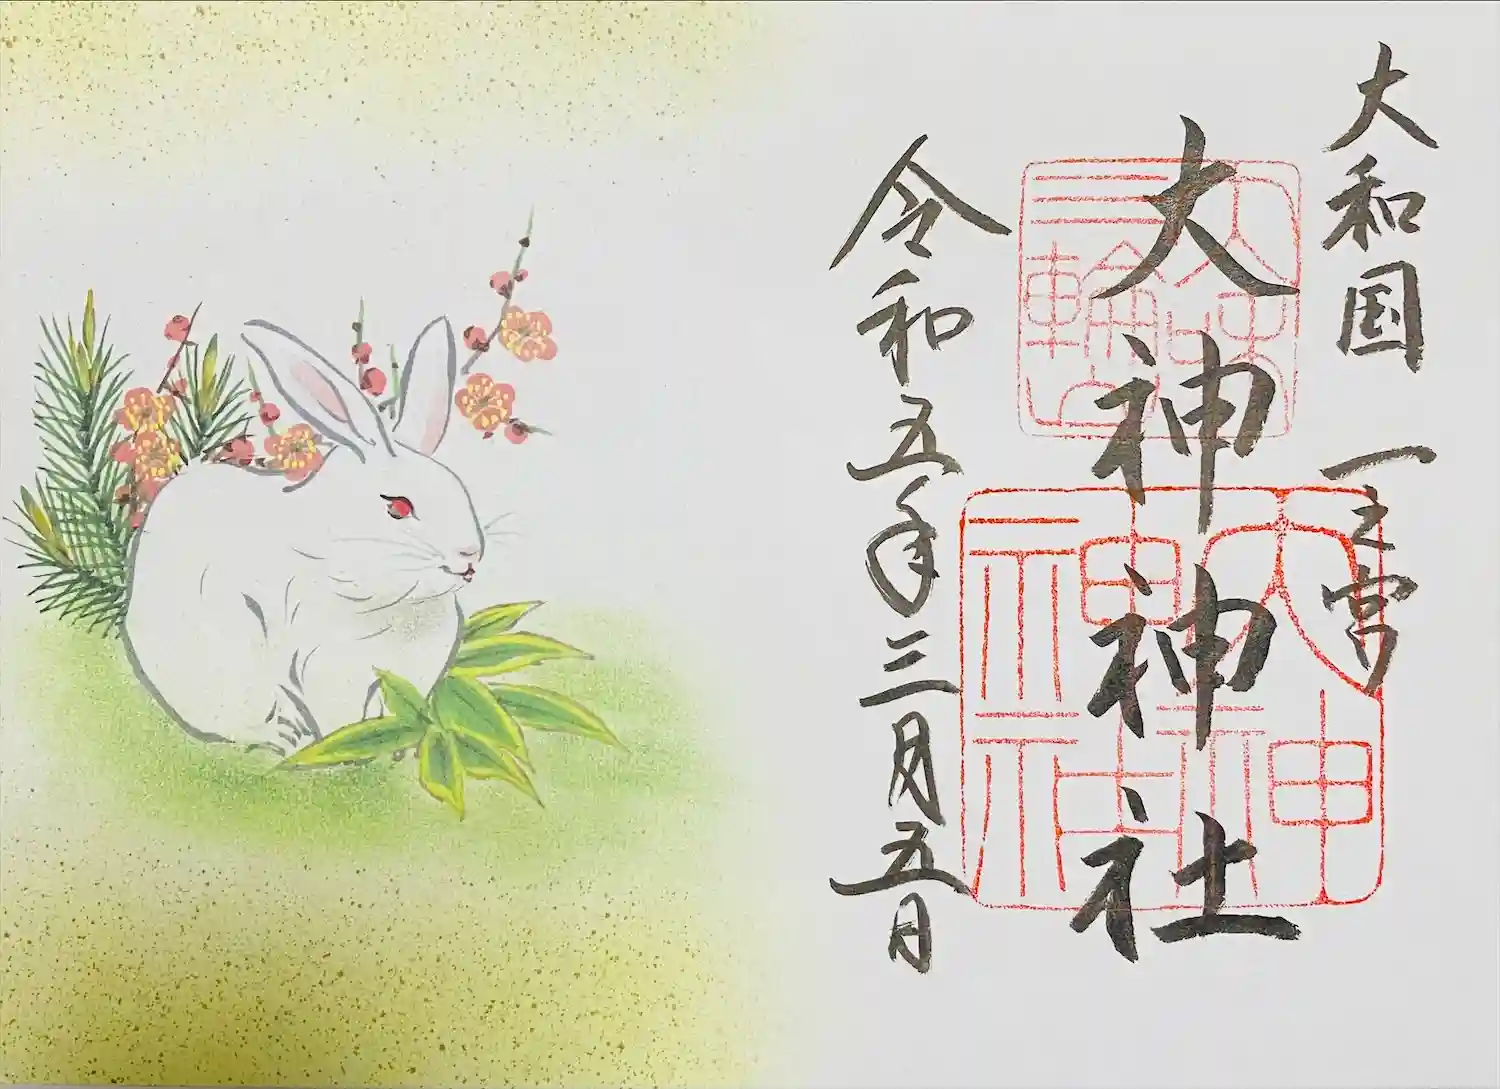 大和国一之宮
大神神社
令和五年三月五日
大神
神社